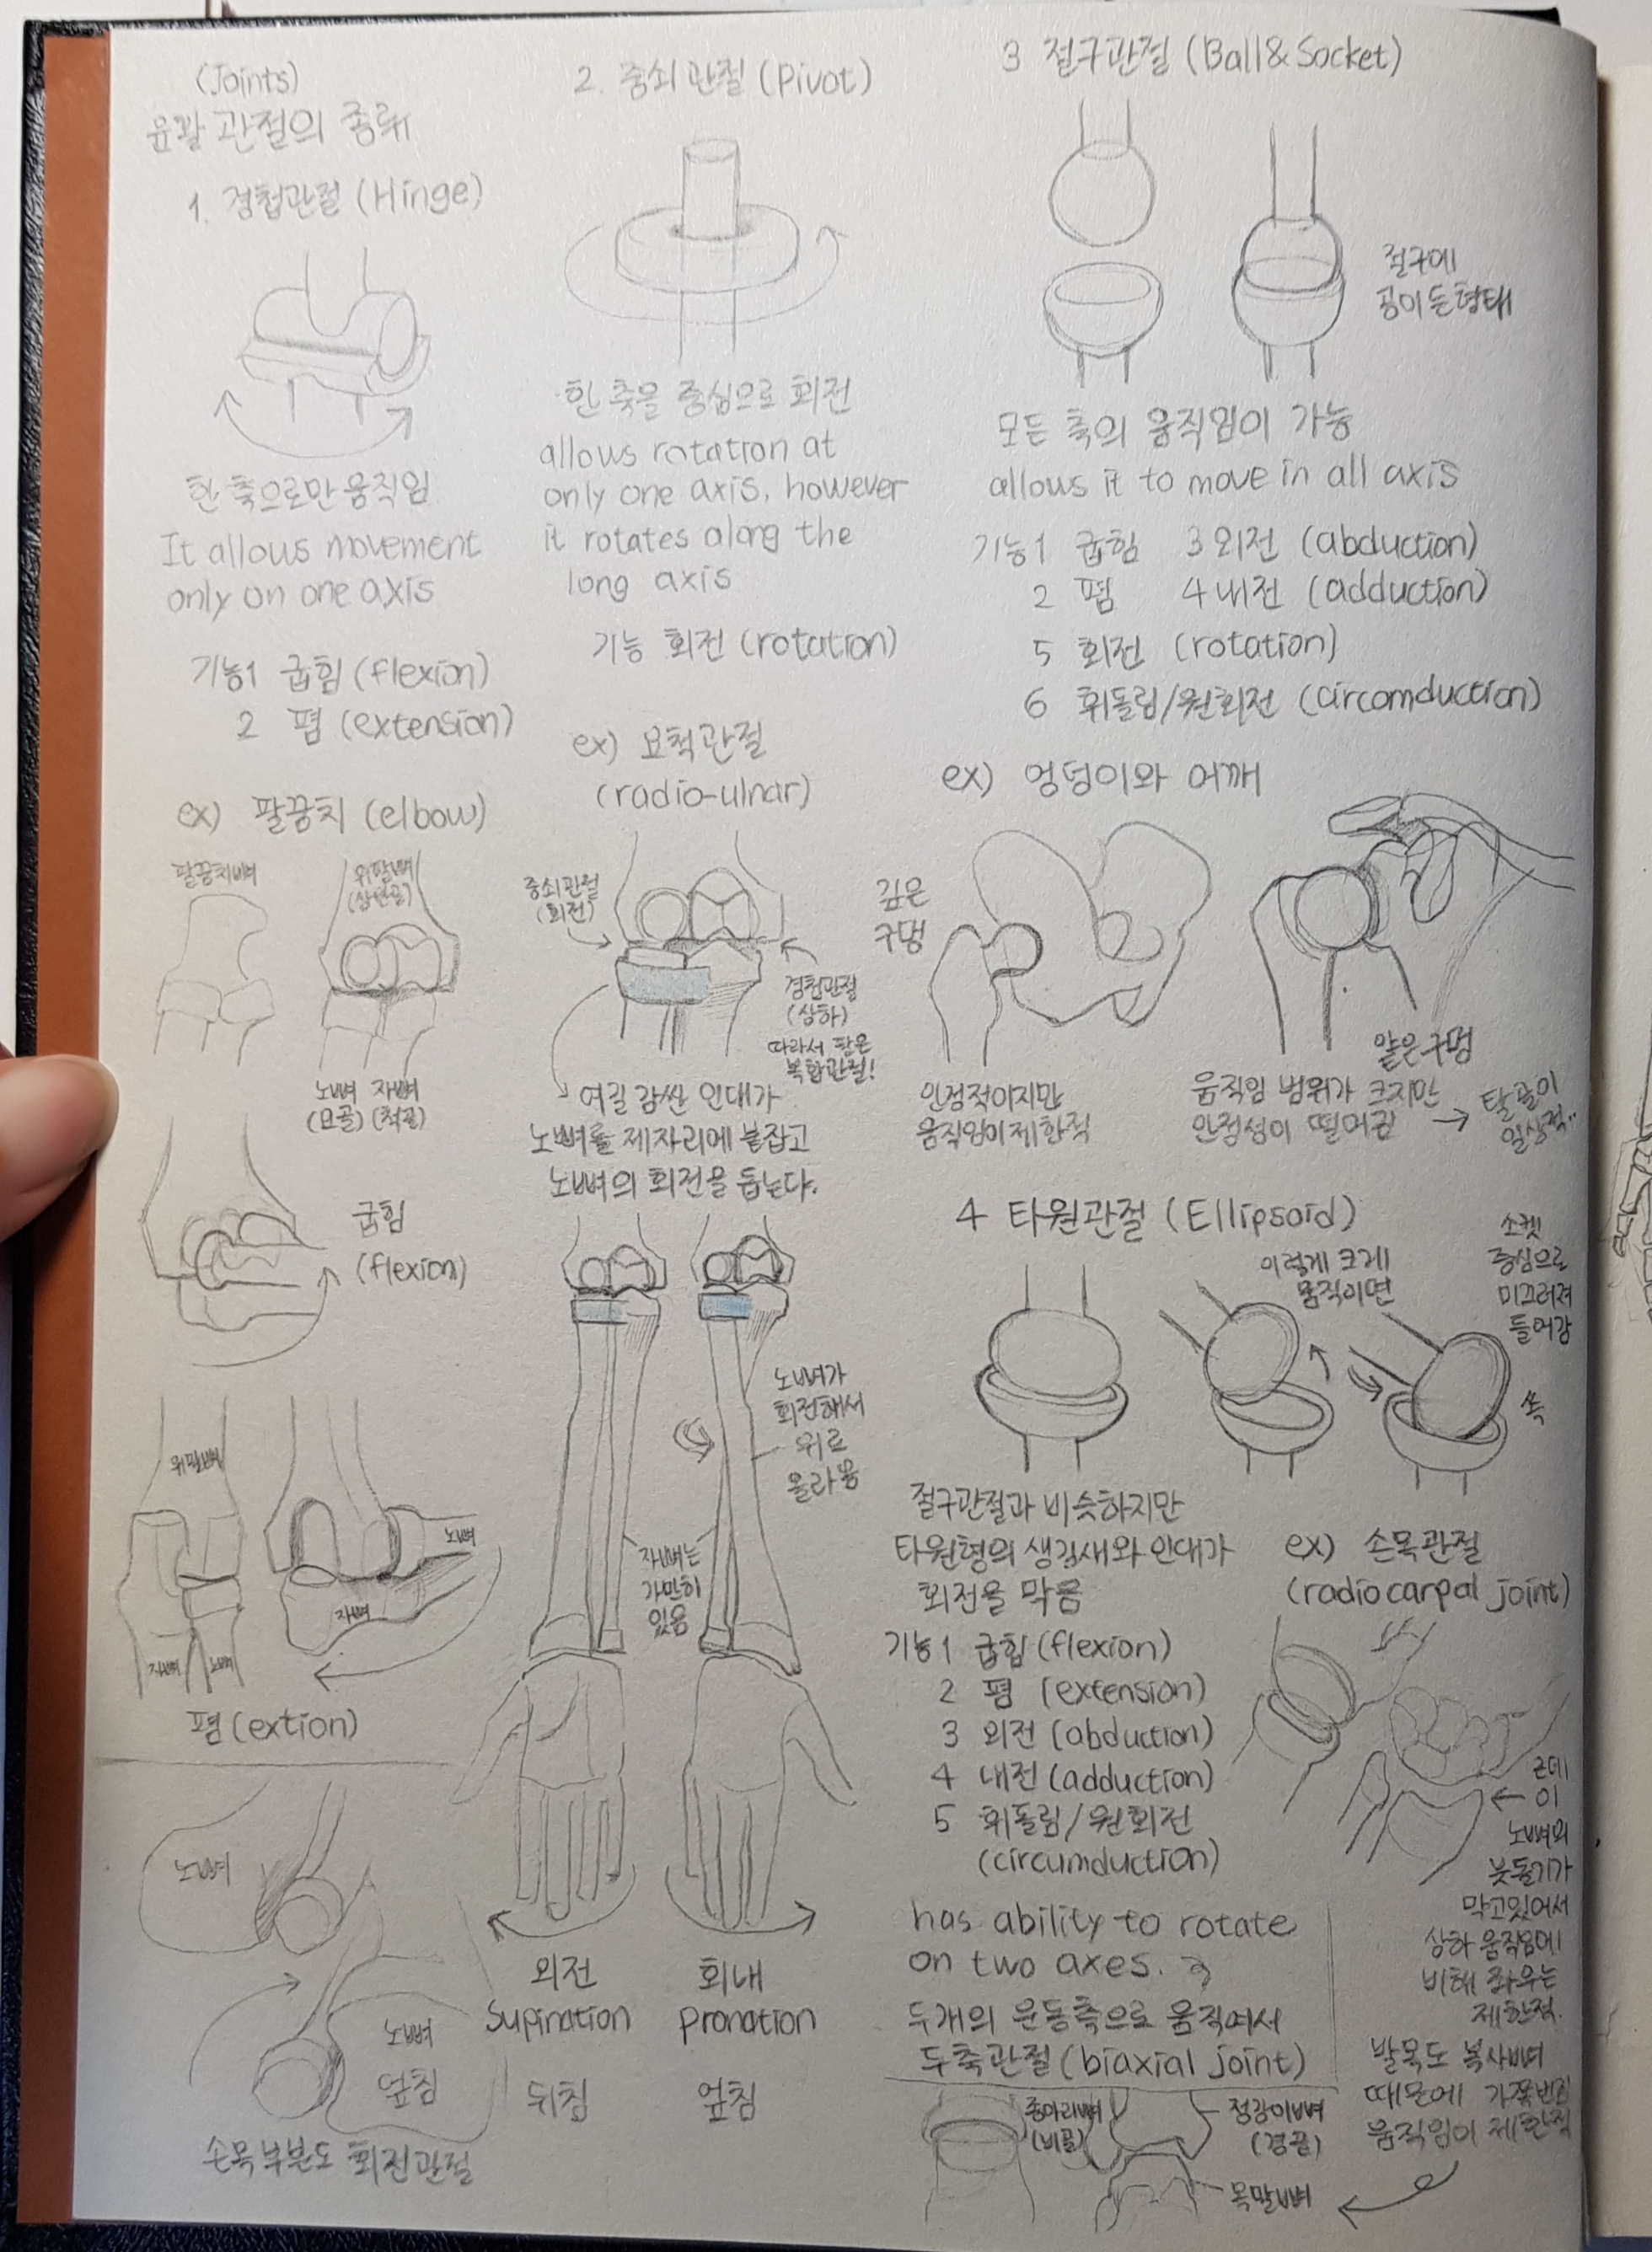 (Joints)
윤활 관절의 종류
1. 경첩관절 (Hinge)
한 축으로만 움직임
It allows movement
only on one axis
기능1 굽힘 (flexion)
2 폄 (extension)
ex) 팔꿈치 (elbow)
팔꿈치뼈
위팔뼈
(상완골)
노뼈 자뼈
(요골) (척골)
굽힘
(flexion)
위팔뼈
자뼈 노뼈
노뼈
자뼈
폄 (extion)
노뼈
노뼈
엎침
손목부분도 회전관절
2. 중쇠관절 (Pivot)
한 축을 중심으로 회전
allows rotation at
only one axis, however
it rotates along the
long axis
기능 회전 (rotation)
ex) 요척관절
(radio-ulnar)
중쇠관절
(회전)
경첩관절
(상하)
따라서 팔은
복합관절!
여길 감싼 인대가
노뼈를 제자리에 붙잡고
노뼈의 회전을 돕는다.
노뼈가
회전해서
위로
올라옴
자뼈는
가만히
있음
외전 회내
Supination Pronation
뒤침 엎침
3 절구관절 (Ball&Socket)
절구에
공이 든 형태
모든 축의 움직임이 가능
allows it to move in all axis
기능1 굽힘 3 외전 (abduction)
2 폄 4 내전 (adduction)
5 회전 (rotation)
6 휘돌림/원회전 (circomduction)
ex) 엉덩이와 어깨
깊은
구멍
얕은구멍
안정적이지만
움직임이 제한적
움직임 범위가 크지만
안정성이 떨어짐 → 탈골이
일상적..
4 타원관절 (Ellipsoid)
이렇게 크게
움직이면
소켓
중심으로
미끄러져
들어감
쏙
절구관절과 비슷하지만
타원형의 생김새와 인대가
회전을 막음
기능1 굽힘 (flexion)
2 폄 (extension)
3 외전 (abduction)
4 내전 (adduction)
5 휘돌림/원회전
(circumduction)
has ability to rotate
on two axes.
두개의 운동축으로 움직여서
두축관절 (biaxial joint)
ex) 손목관절
(radiocarpal joint)
근데
← 이
노뼈의
붓돌기가
막고있어서
상하 움직임에
비해 좌우는
제한적.
발목도 복사뼈
때문에
움직임이 제한적
종아리뼈
(비골)
정강이뼈
(경골)
목말뼈